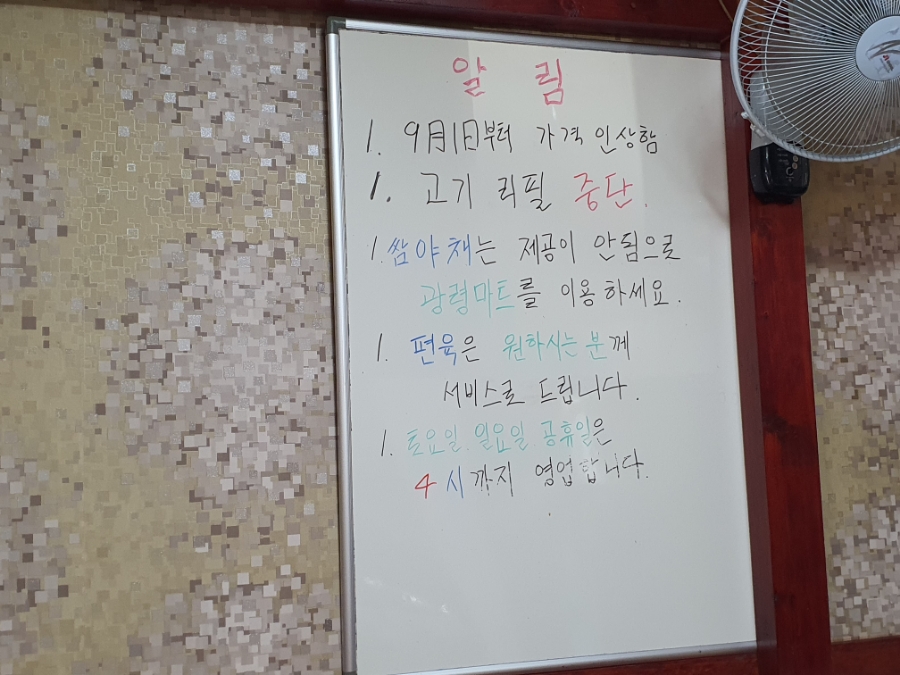 알 림
1. 9月1日부터 가격 인상함
1. 고기 리필 중단.
1. 쌈야채는 제공이 안됨으로
광령마트를 이용하세요.
1. 편육은 원하시는 분께
서비스로 드립니다.
1. 토요일. 일요일. 공휴일은
4시까지 영업합니다.